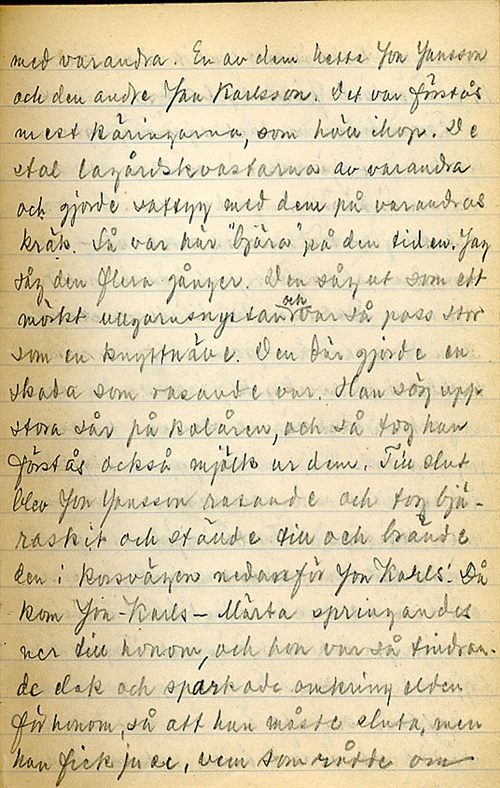 med varandra. En av dem hette Jon Jansson
och den andre Jan Karlsson. Det var förstås
mest käringarna, som höll ihop. De
stal lagårdskvastarna av varandra
och gjorde sattyg med dem på varandras
kräk. Så var här "bjära" på den tiden. Jag
såg den flera gånger. Den såg ut som ett
mörkt ullgarnsnystan och var så pass stor
som en knytnäve. Den där gjorde en
skada som rasande var. Han sög upp
stora sår på kalåren, och så tog han
förstås också mjölk ur dem. Till slut
blev Jon Jansson rasande och tog bjä-
raskit och stände till och brände
den i korsvägen nedanför Jon Karls. Då
kom Jon-Karls-Märta springandes
ner till honom, och hon var så tindran-
de elak och sparkade omkring elden
för honom, så att han måste sluta, men
han fick ju se, vem som rådde om